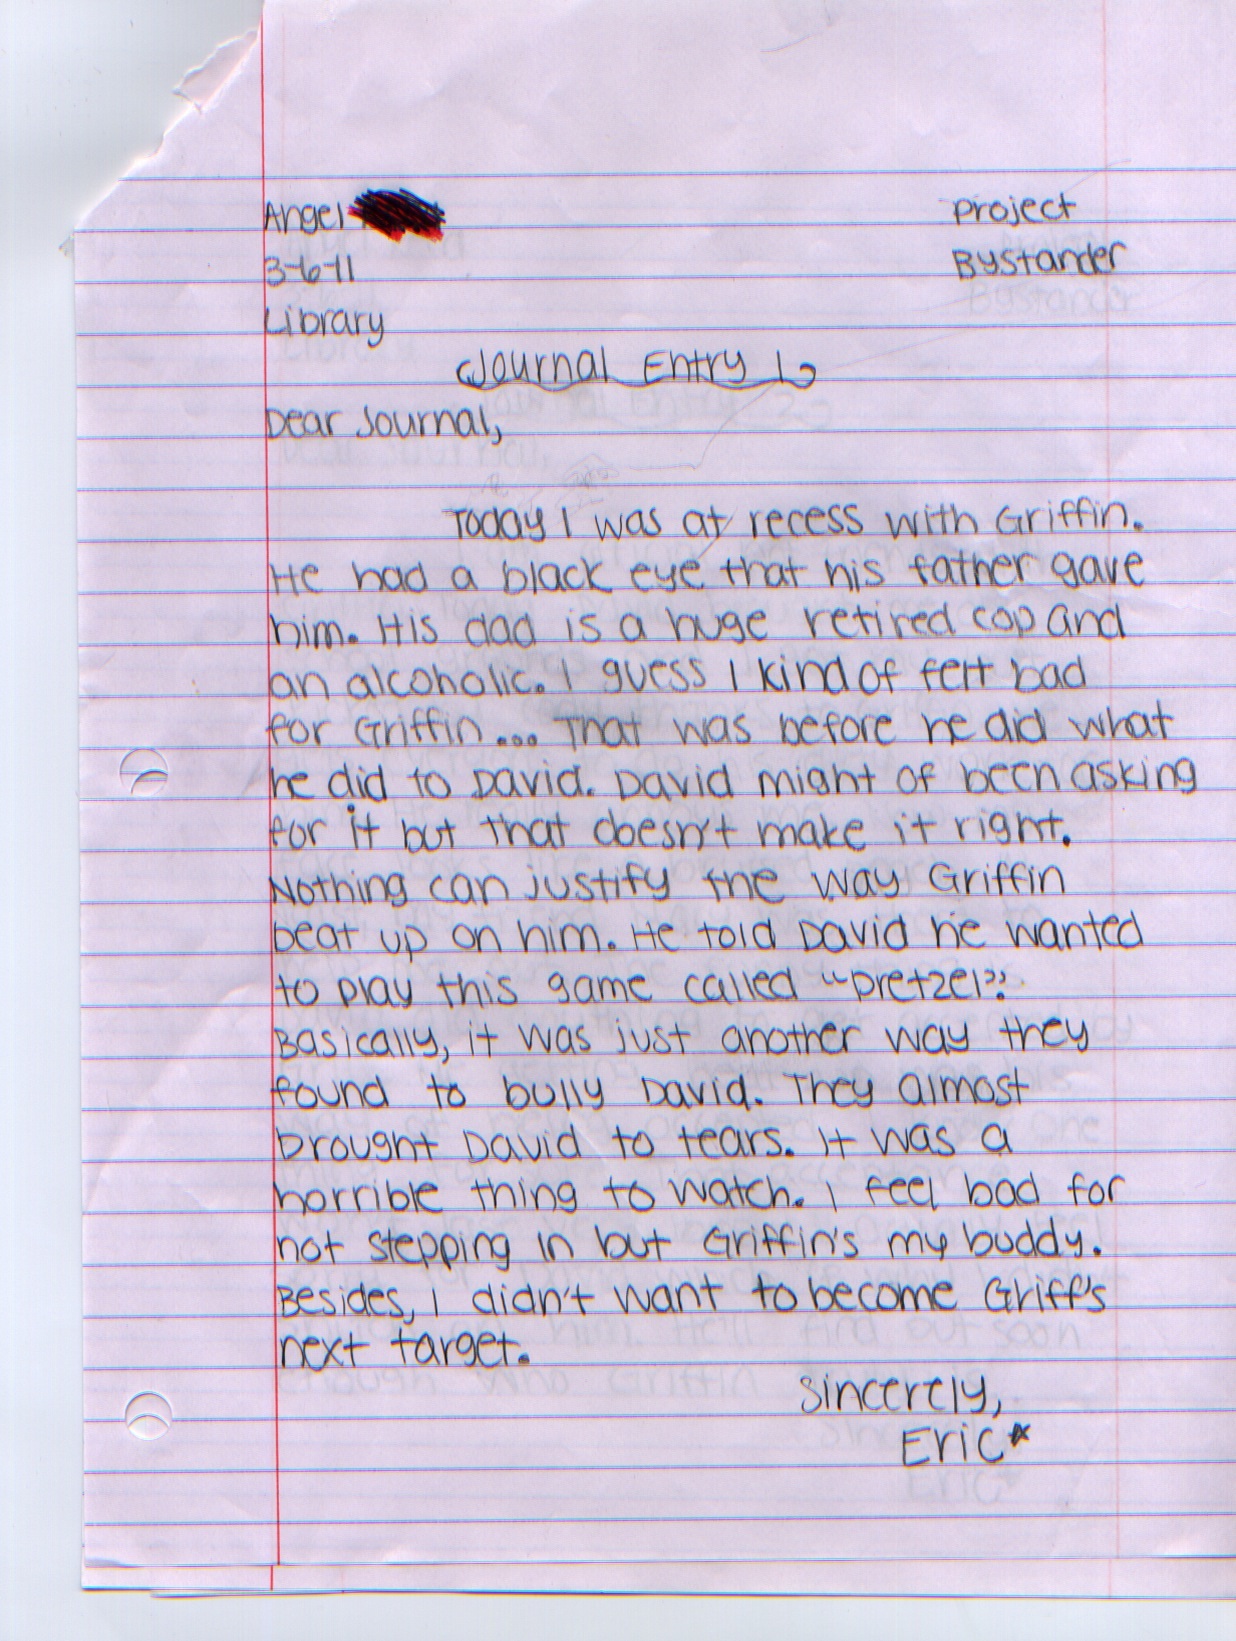 Angel
Project
3-6-11
Bystander
Library
Journal Entry 1
Dear Journal,
Today I was at recess with Griffin.
He had a black eye that his father gave
him. His dad is a huge retired cop and
an alcoholic. I guess I kind of felt bad
for Griffin... That was before he did what
he did to David. David might of been asking
for it but that doesn't make it right.
Nothing can justify the way Griffin
beat up on him. He told David he wanted
to play this game called "pretzel".
Basically, it was just another way they
found to bully David. They almost
brought David to tears. It was a
horrible thing to watch. I feel bad for
not stepping in but Griffin's my buddy.
Besides, I didn't want to become Griff's
next target.
Sincerely,
Eric*